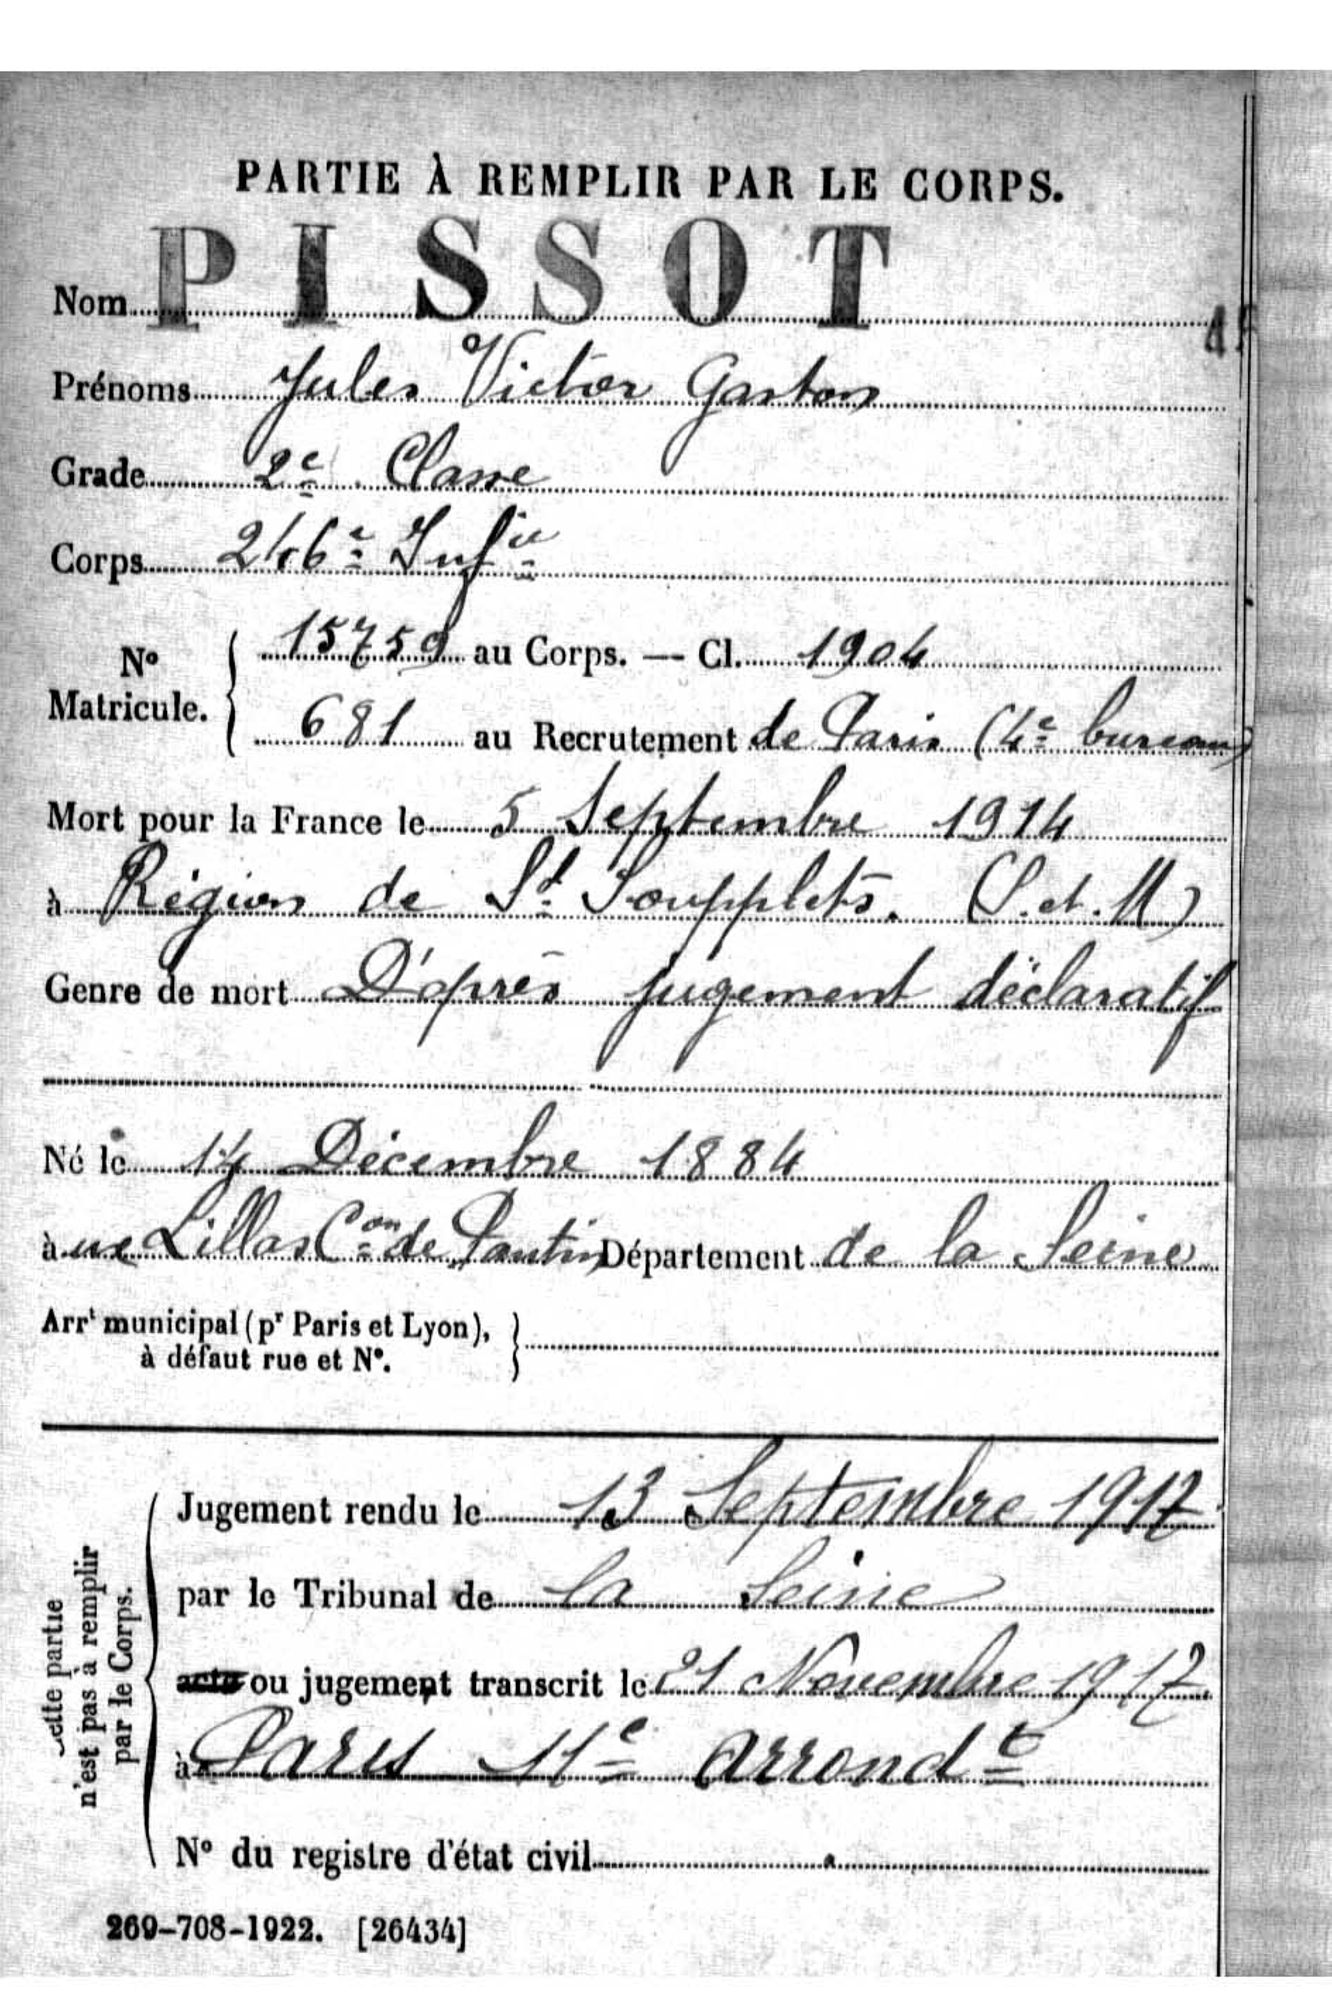 PARTIE À REMPLIR PAR LE CORPS.
Nom PISSOT
Prénoms Jules Victor Gaston
Grade 2e Classe
Corps 246e Infie
No Matricule. { 15759 au Corps. — Cl. 1904
681 au Recrutement de Paris (4e bureau)
Mort pour la France le 5 Septembre 1914
à Région de St Soupplets. (S. et. M)
Genre de mort D'après jugement déclaratif
Né le 14 Décembre 1884
à Lillas Con de Pantin Département de la Seine
Arrt municipal (pr Paris et Lyon), }
à défaut rue et No.
Cette partie
n'est pas à remplir
par le Corps.
Jugement rendu le 13 Septembre 1917
par le Tribunal de la Seine
acte ou jugement transcrit le 21 Novembre 1917
à Paris 11e arrondt
No du registre d'état civil
269-708-1922. [26434]